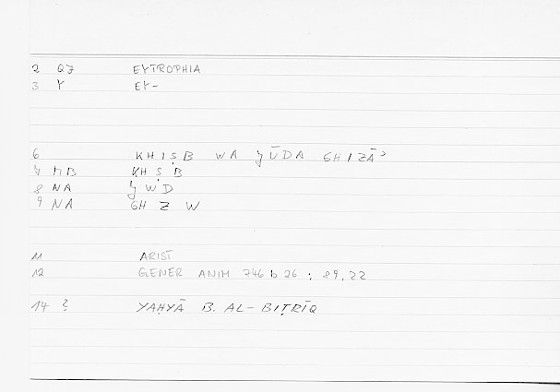 2 EYTROPHIA
3 Y EY-
6 KHIṢB WA JŪDA GHIZĀʾ
7 MB KH Ṣ B
8 NA J W D
9 NA GH Z W
11 ARIST
12 GENER ANIM 746 b 26 : 89,22
14 ? YAḤYĀ B. AL-BIṬRĪQ